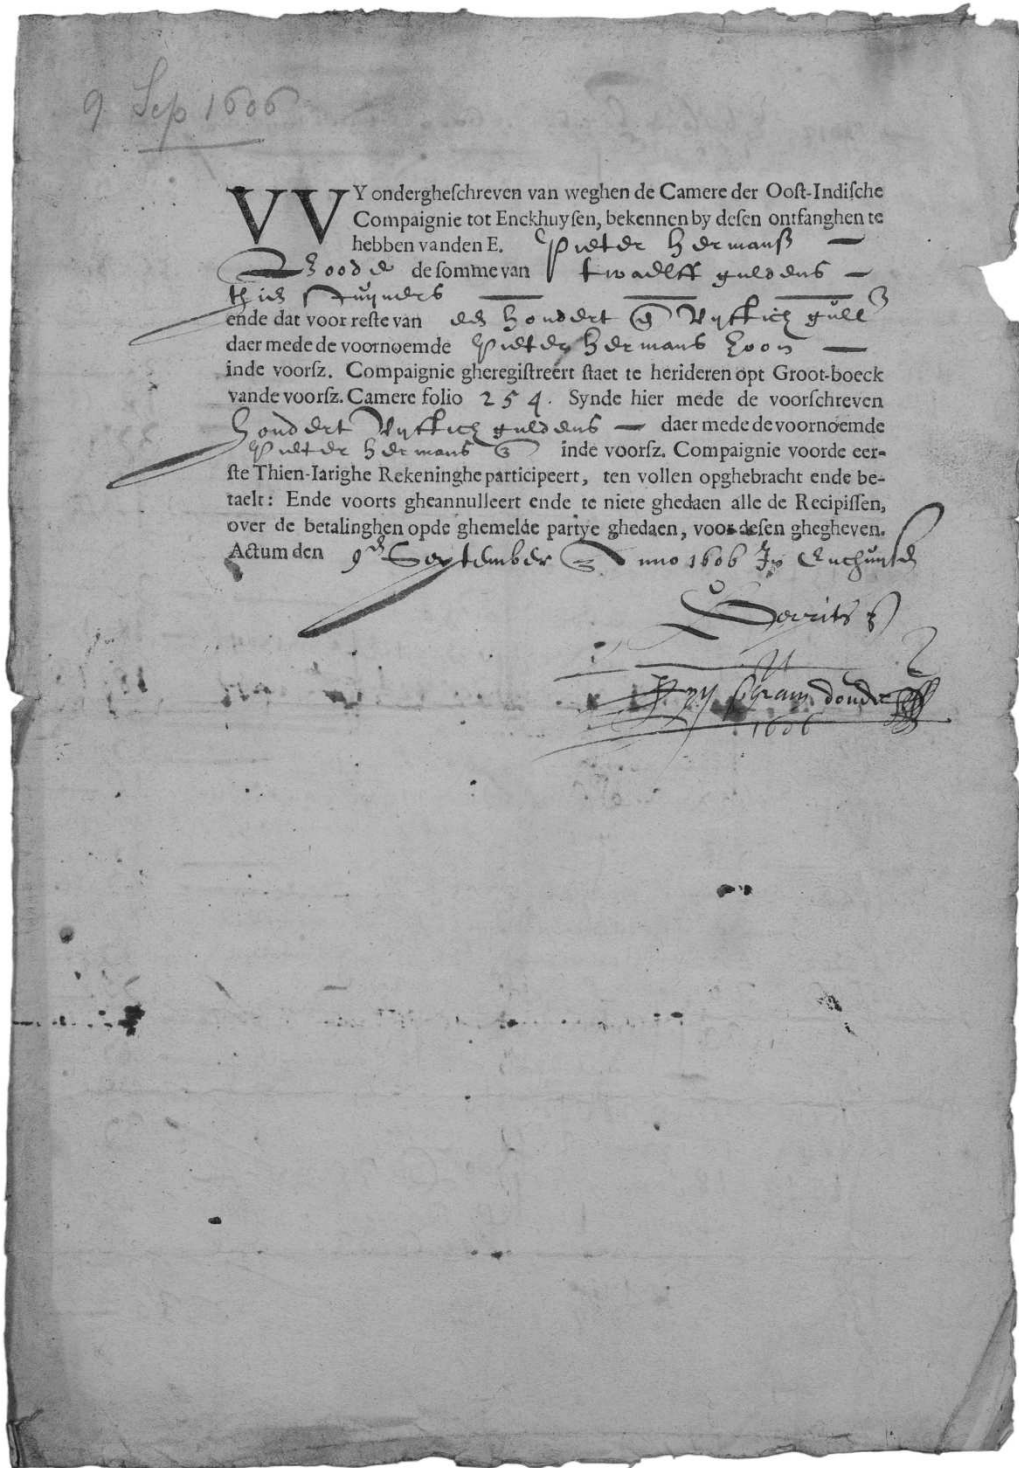 9 Sep 1606
VVY onderghefchreven van weghen de Camere der Ooſt-Indiſche
Compaignie tot Enckhuyſen, bekennen by deſen ontfanghen te
hebben vanden E. Pieter Hermansz
Boode de ſomme van twaelff guldens
thien stuyvers
ende dat voor reſte van een hondert vyfftich gull
daer mede de voornoemde Pieter Hermans zoon
inde voorſz. Compaignie gheregiſtreert ſtaet te herideren opt Groot-boeck
vande voorſz. Camere folio 254. Synde hier mede de voorſchreven
hondert vyfftich guldens daer mede de voornoemde
Pieter Hermans inde voorſz. Compaignie voorde eer-
ſte Thien-Iarighe Rekeninghe participeert, ten vollen opghebracht ende be-
taelt: Ende voorts gheannulleert ende te niete ghedaen alle de Recipiſſen,
over de betalinghen opde ghemelde partye ghedaen, voor deſen ghegheven.
Actum den 9 September Anno 1606 In
Gerritsz
1606